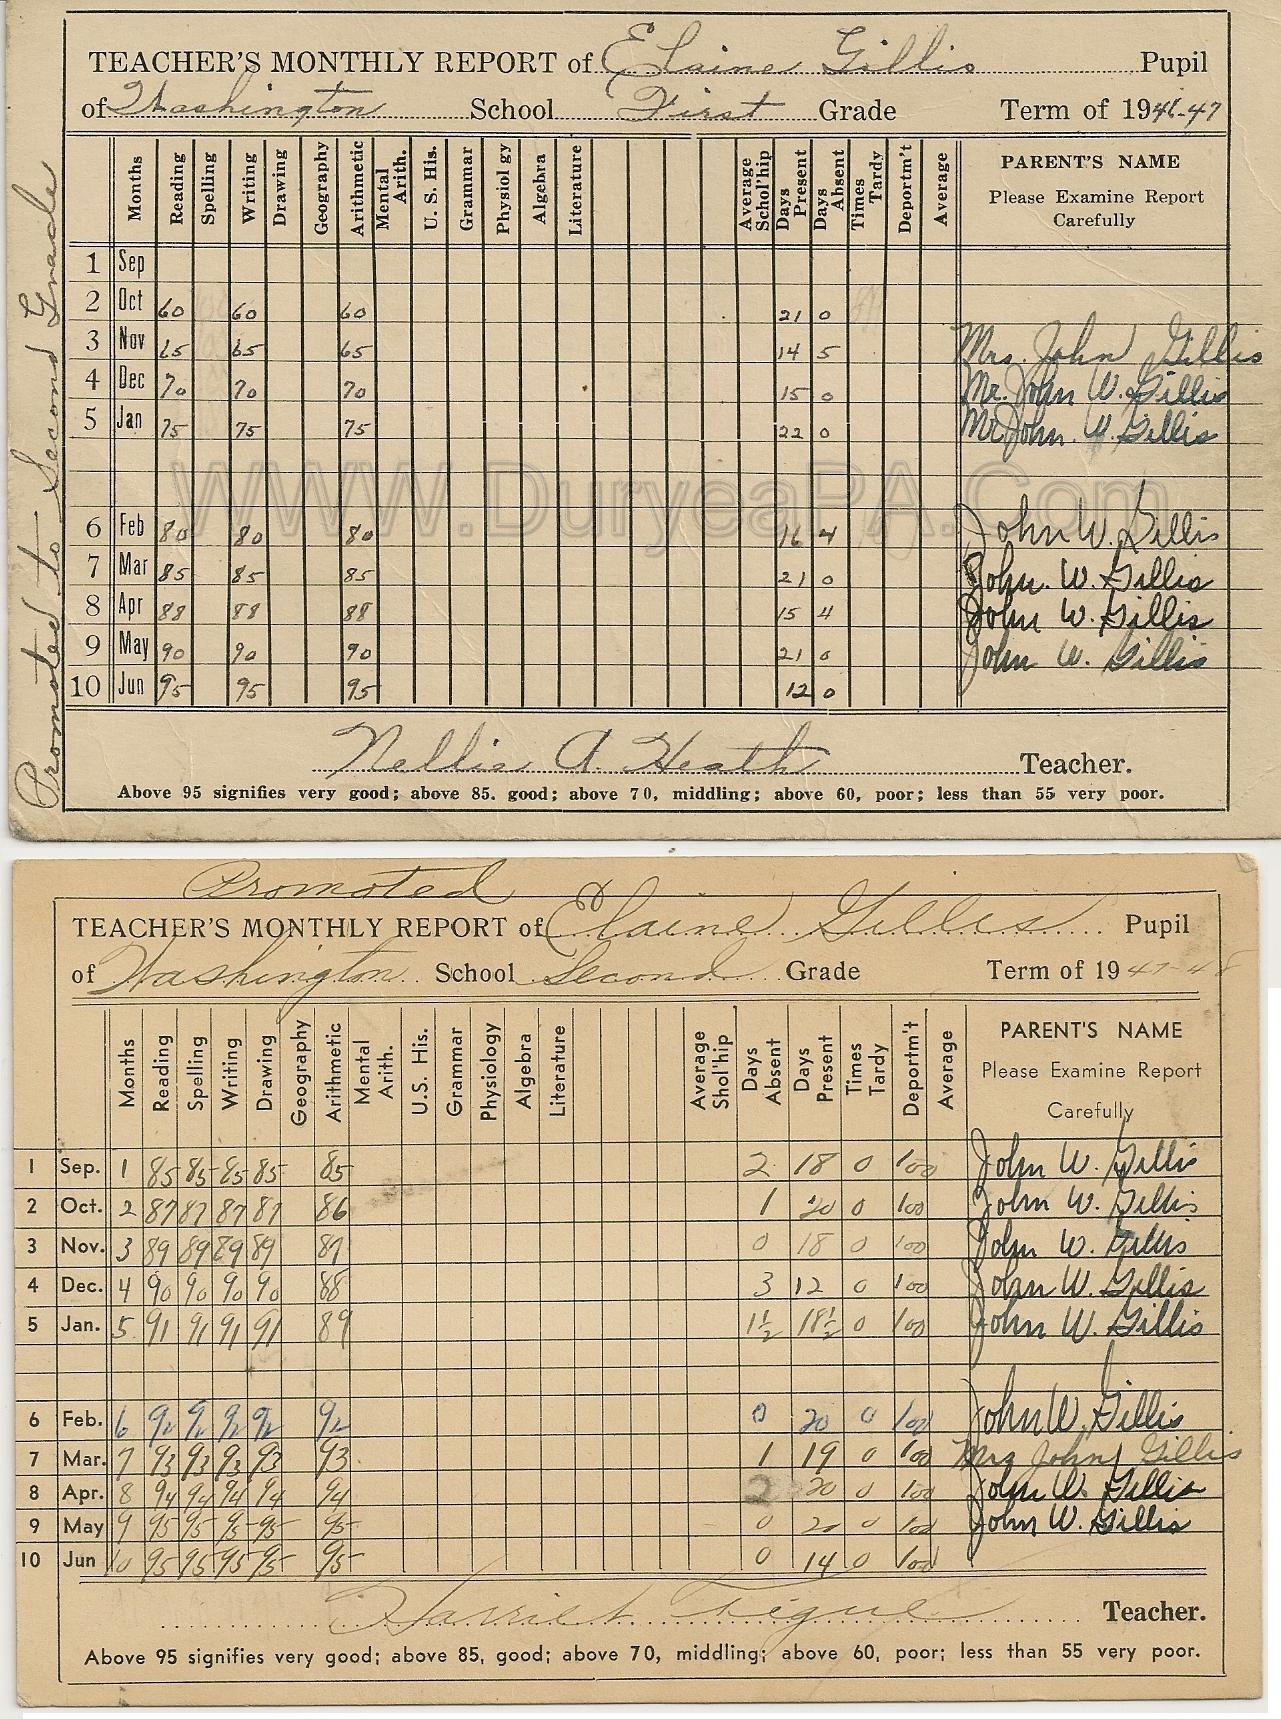 TEACHER'S MONTHLY REPORT of Elaine Gillis Pupil
of Washington School First Grade Term of 1946-47
Months Reading Spelling Writing Drawing Geography Arithmetic Mental Arith. U. S. His. Grammar Physiol gy Algebra Literature Average Schol'hip Days Present Days Absent Times Tardy Deportm't Average PARENT'S NAME
Please Examine Report
Carefully
1 Sep
2 Oct 60 60 60 21 0
3 Nov 65 65 65 14 5 Mrs. John Gillis
4 Dec 70 70 70 15 0 Mr. John W. Gillis
5 Jan 75 75 75 22 0 Mr John. W. Gillis
WWW.DuryeaPA.Com
6 Feb 80 80 80 16 4 John W. Gillis
7 Mar 85 85 85 21 0 John. W. Gillis
8 Apr 88 88 88 15 4 John W. Gillis
9 May 90 90 90 21 0 John W. Gillis
10 Jun 95 95 95 12 0
Promoted to Second Grade
Nellie A. Heath Teacher.
Above 95 signifies very good; above 85. good; above 70, middling; above 60, poor; less than 55 very poor.
Promoted
TEACHER'S MONTHLY REPORT of Elaine Gillis Pupil
of Washington School Second Grade Term of 1947-48
Months Reading Spelling Writing Drawing Geography Arithmetic Mental Arith. U.S. His. Grammar Physiology Algebra Literature Average Shol'hip Days Absent Days Present Times Tardy Deportm't Average PARENT'S NAME
Please Examine Report
Carefully
1 Sep. 1 85 85 85 85 85 2 18 0 100 John W. Gillis
2 Oct. 2 87 87 87 87 86 1 20 0 100 John W. Gillis
3 Nov. 3 89 89 89 89 87 0 18 0 100 John W. Gillis
4 Dec. 4 90 90 90 90 88 3 12 0 100 John W. Gillis
5 Jan. 5 91 91 91 91 89 1½ 18½ 0 100 John W. Gillis
6 Feb. 6 92 92 92 92 92 0 20 0 100 John W. Gillis
7 Mar. 7 93 93 93 93 93 1 19 0 100 Mrs John Gillis
8 Apr. 8 94 94 94 94 94 2 20 0 100 John W. Gillis
9 May 9 95 95 95 95 95 0 20 0 100 John W. Gillis
10 Jun 10 95 95 95 95 95 0 14 0 100
Harriet Teacher.
Above 95 signifies very good; above 85, good; above 70, middling; above 60, poor; less than 55 very poor.